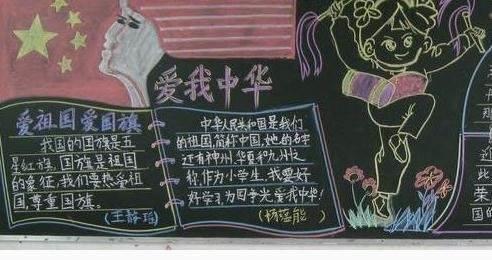 爱我中华
爱祖国爱国旗
我国的国旗是五
星红旗,国旗是祖国
的象征,我们要热爱祖
国,尊重国旗。
中华人民共和国是我们
的祖国,简称中国,她的名字
还有神州、华夏和九州
称,作为小学生,我要好
好学习为国争光,爱我中华!
此
荣
国的